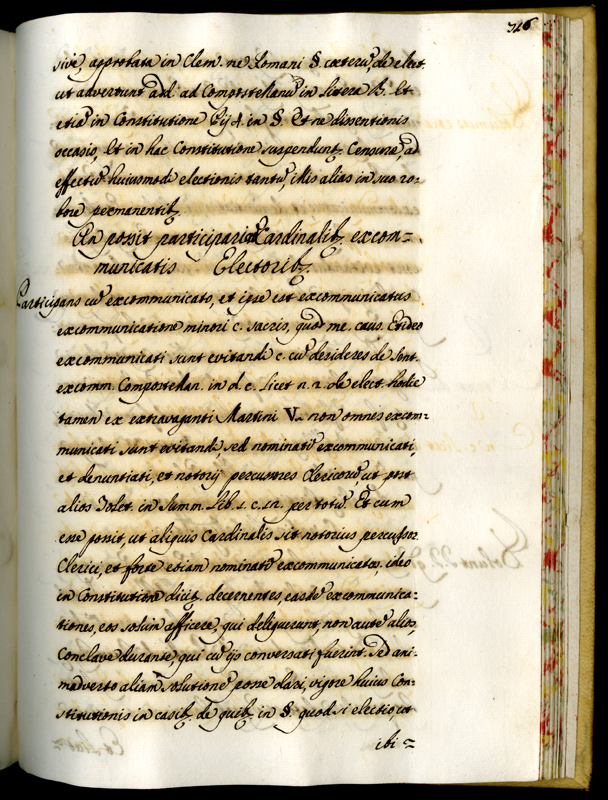 316
sive, approbata in Clem. ne Romani §. cæterũ, de elect.
ut advertunt add. ad Compostellanũ in litera B. Et
etiã in Constitutione Pij 4. in §. Et ne dissentionis
occasio, Et in hac Constitutione suspendunt. Censuræ, ad
effectũ huiusmodi electionis tantũ, illis alias in suo ro-
bore permanentib.
An possit participari Cardinalib. excom=
municatis Electorib.
Participans cũ excommunicato, et ipse est excommunicatus
excommunicatione minori c. sacris, quod me. caus. Et ideo
excommunicati sunt evitandi c. cũ desideres de sent.
excomm. Compostellan. in d. c. licet n. n. de elect. hodie
tamen ex extravaganti Martini V. non omnes excom-
municati sunt evitandi, sed nominatĩ excommunicati,
et denuntiati, et notorij percussores Clericorũ, ut post
alios Tolet. in Summ. lib. 1. c. 12. per totũ. Et cum
esse possit, ut aliquis Cardinalis sit notorius percussor
Clerici, et forte etiam nominatĩ excommunicatus, ideo
in Constitutione dicit. decernentes, easdẽ excommunica-
tiones, eos solum afficere, qui deliquerunt, non autẽ alios,
Conclave durante, qui cũ ijs conversati fuerint. Sed ani-
madverto aliam solutionẽ posse dari, vigore huius Con-
stitutionis in casib. de quib. in §. quod si electio, ut
ibi =